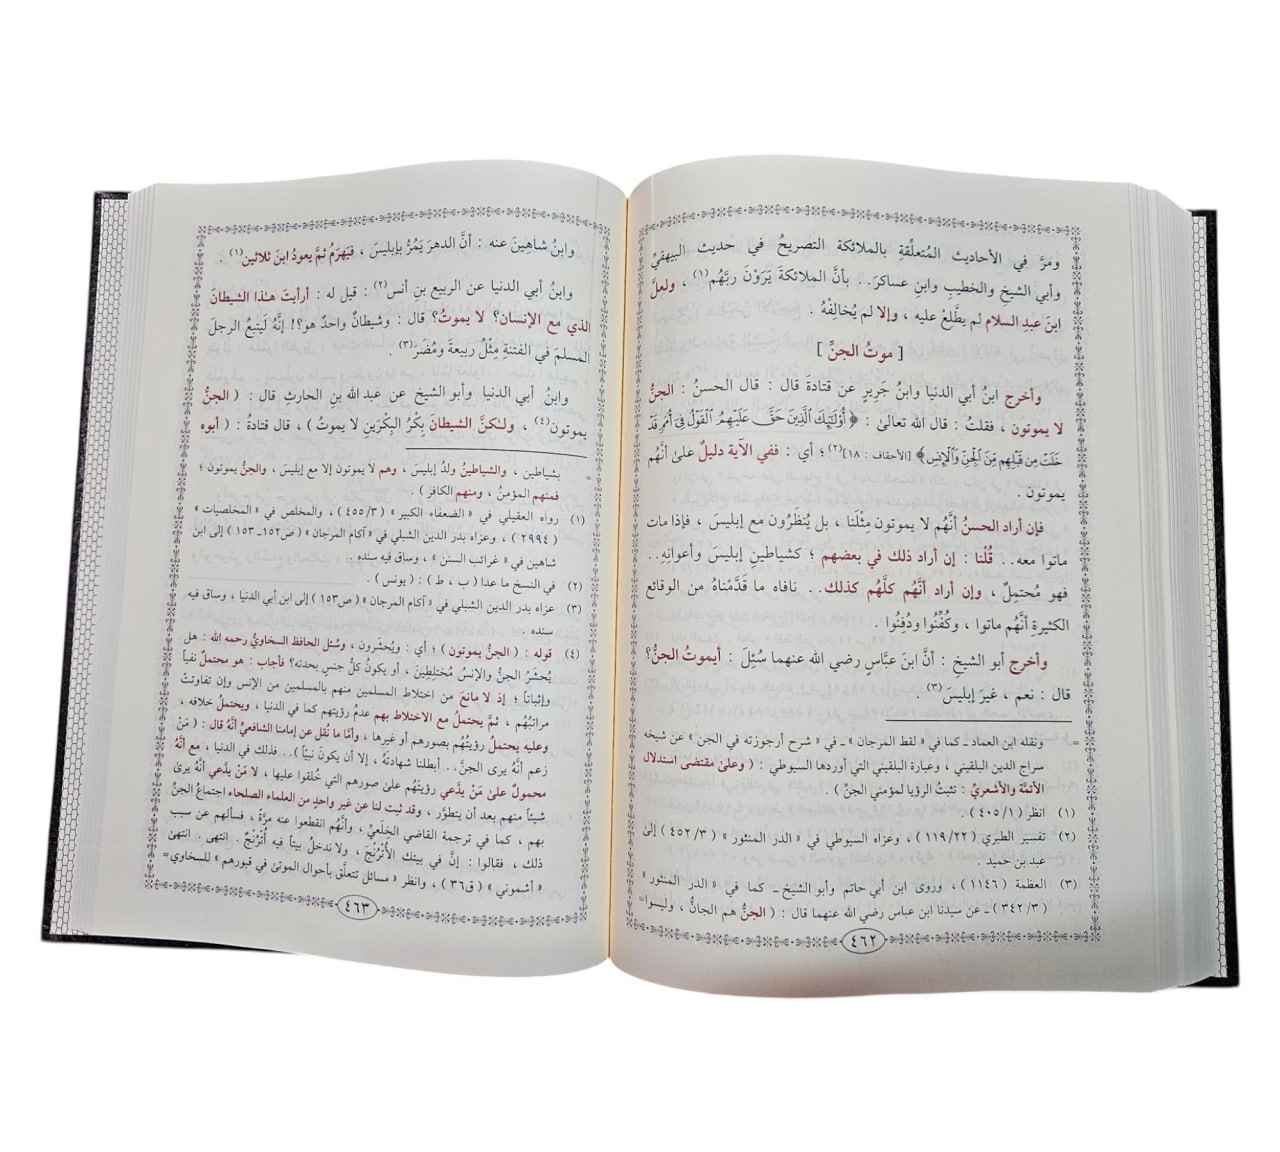 ومَرَّ في الأحاديث المُتعلِّقةِ بالملائكة التصريحُ في حديث البيهقيِّ
وأبي الشيخ والخطيبِ وابنِ عساكرَ.. بأنَّ الملائكةَ يَرَوْنَ ربَّهُم(١) ، ولعلَّ
ابنَ عبدِ السلام لم يطَّلِعْ عليه ، وإلا لم يُخالِفْهُ .
[ موتُ الجنِّ ]
وأخرج ابنُ أبي الدنيا وابنُ جَريرٍ عن قتادةَ قال : قال الحسنُ : الجنُّ
لا يموتون ، فقلتُ : قال الله تعالىٰ : ﴿ أُوْلَـٰٓئِكَ ٱلَّذِينَ حَقَّ عَلَيْهِمُ ٱلْقَوْلُ فِىٓ أُمَمٍ قَدْ
خَلَتْ مِن قَبْلِهِم مِّنَ ٱلْجِنِّ وَٱلْإِنسِ﴾ [الأحقاف : ١٨](٢) ؛ أي : ففي الآية دليلٌ علىٰ أنَّهُم
يموتون .
فإن أراد الحسنُ أنَّهُم لا يموتون مِثْلَنا ، بل يُنظَرُون مع إبليسَ ، فإذا مات
ماتوا معه.. قُلْنا : إن أراد ذلك في بعضهم ؛ كشياطينِ إبليسَ وأعوانِهِ..
فهو مُحتمِلٌ ، وإن أراد أنَّهُم كلَّهُم كذلك.. نافاه ما قَدَّمْناهُ من الوقائع
الكثيرةِ أنَّهُم ماتوا ، وكُفِّنُوا ودُفِنُوا .
وأخرج أبو الشيخ : أنَّ ابنَ عبَّاسٍ رضي الله عنهما سُئِلَ : أيموتُ الجنُّ؟
قال : نعم ، غيرَ إبليسَ(٣) .
= ونقله ابن العماد ـ كما في « لقط المرجان » ـ في « شرح أرجوزته في الجن » عن شيخه
سراج الدين البلقيني ، وعبارة البلقيني التي أوردها السيوطي : ( وعلىٰ مقتضى استدلال
الأئمَّة والأشعريِّ : تثبتُ الرؤيا لمؤمني الجنِّ ) .
(١) انظر ( ٤٠٥/١ ) .
(٢) تفسير الطبري ( ١١٩/٢٢ ) ، وعزاه السيوطي في « الدر المنثور » ( ٤٥٢/٣ ) إلىٰ
عبد بن حميد .
(٣) العظمة ( ١١٤٦ ) ، وروى ابن أبي حاتم وأبو الشيخ ـ كما في « الدر المنثور »
( ٣٤٢/٣ ) ـ عن سيدنا ابن عباس رضي الله عنهما قال : ( الجنُّ هم الجانُّ ، وليسوا=
٤٦٢
وابنُ شاهِينَ عنه : أنَّ الدهرَ يَمُرُّ بإبليسَ ، فيَهرَمُ ثمَّ يعودُ ابنَ ثلاثين(١) .
وابنُ أبي الدنيا عن الربيع بنِ أنس(٢) : قيل له : أرأيتَ هـٰذا الشيطانَ
الذي مع الإنسان؟ لا يموتُ؟ قال : وشيطانٌ واحدٌ هو؟! إنَّهُ ليَتبعُ الرجلَ
المسلمَ في الفتنةِ مِثْلُ ربيعةَ ومُضَرَ(٣)
وابنُ أبي الدنيا وأبو الشيخ عن عبد الله بنِ الحارثِ قال : ( الجنُّ
يموتون(٤) ، ولـٰكنَّ الشيطانَ بِكْرُ البِكْرَينِ لا يموتُ ) ، قال قتادةُ : ( أبوه
= بشياطين ، والشياطينُ ولدُ إبليسَ ، وهم لا يموتون إلا مع إبليسَ ، والجنُّ يموتون ؛
فمنهم المؤمنُ ، ومنهم الكافر ) .
(١) رواه العقيلي في « الضعفاء الكبير » ( ٤٥٥/٣ ) ، والمخلص في « المخلصيات »
( ٢٩٩٤ ) ، وعزاه بدر الدين الشبلي في « آكام المرجان » ( ص١٥٢ـ١٥٣ ) إلى ابن
شاهين في « غرائب السنن » ، وساق فيه سنده .
(٢) في النسخ ما عدا ( ب ، ط ) : ( يونس ) .
(٣) عزاه بدر الدين الشبلي في « آكام المرجان » ( ص١٥٣ ) إلى ابن أبي الدنيا ، وساق فيه
سنده .
(٤) قوله : ( الجنُّ يموتون ) ؛ أي : ويُحشَرون ، وسُئل الحافظ السخاويُّ رحمه الله : هل
يُحشَرُ الجنُّ والإنسُ مُختلِطِينَ ، أو يكونُ كلُّ جنسٍ بحدته؟ فأجاب : هو محتملٌ نفياً
وإثباتاً ؛ إذ لا مانعَ من اختلاط المسلمين منهم بالمسلمين من الإنس وإن تفاوتتْ
مراتبُهُم ، ثمَّ يحتملُ مع الاختلاط بهم عدمُ رؤيتهم كما في الدنيا ، ويحتملُ خلافه ،
وعليه يحتملُ رؤيتُهُم بصورهم أو غيرها ، وأمَّا ما نُقل عن إمامنا الشافعيِّ أنَّهُ قال : ( مَنْ
زعم أنَّهُ يرى الجنَّ.. أبطلنا شهادتَهُ ، إلا أن يكونَ نبيّاً ).. فذلك في الدنيا ، مع أنَّهُ
محمولٌ علىٰ مَنْ يدَّعي رؤيتَهم علىٰ صورهم التي خُلقوا عليها ، لا مَنْ يدَّعي أنَّهُ يرىٰ
شيئاً منهم بعد أن يتطوَّر ، وقد ثبت لنا عن غير واحدٍ من العلماء الصلحاء اجتماعُ الجنِّ
بهم ، كما في ترجمة القاضي الخِلَعيِّ ، وأنَّهُم انقطعوا عنه مرَّةً ، فسألهم عن سبب
ذلك ، فقالوا : إنَّ في بيتك الأُتْرُنْجَ ، ولا ندخلُ بيتاً فيه أُتْرُنْج . انتهى . انتهىٰ
« أشموني » ( ق٣٦ ) ، وانظر « مسائل تتعلَّق بأحوال الموتىٰ في قبورهم » للسخاوي=
٤٦٣